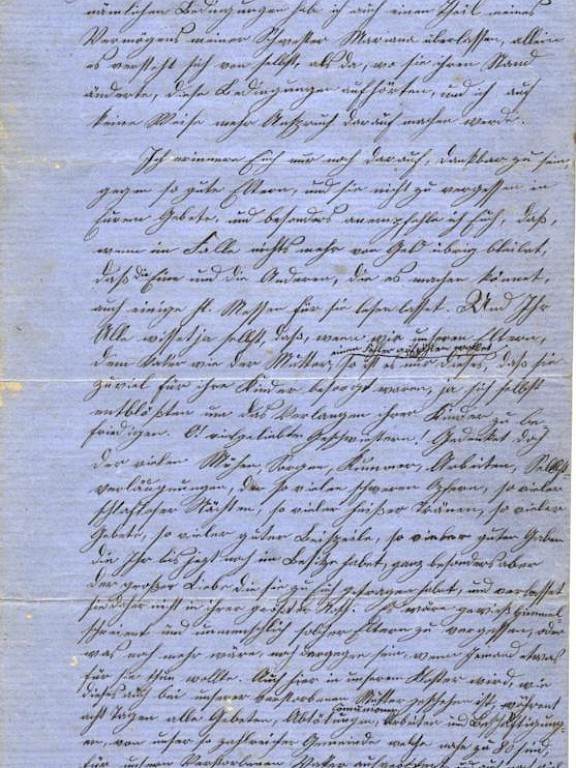 nämlichen Bedingungen hab ich auch einen Theil meines
Vermögens meiner Schwester Mariana überlassen, allein
es versteht sich von selbst, als da, wo sie ihren Stand
änderte, diese Bedingungen aufhörten, und ich auf
keine Weise mehr Anspruch darauf machen werde.
Ich erinnere Euch nur noch darauf, dankbar zu sein,
gegen so gute Eltern, und sie nicht zu vergessen in
Euren Gebete, und besonders anempfehle ich Euch, daß,
wenn im Falle nichts mehr von Geld übrig bleibet,
daß die Eine und die Anderen, die es machen könnet,
auch einige hl. Messen für sie lesen lasset. Und Ihr
Alle wisset ja selbst, daß, wenn wir unseren Eltern,
dem Vater wie der Mutter, so ist es nur dieses, daß sie
zuviel für ihre Kinder besorgt waren, ja sich selbst
entblößten um das Verlangen ihrer Kinder zu be-
friedigen. O! vielgeliebten Geschwistern! Gedenket doch
der vielen Mühen, Sorgen, Kummer, Arbeiten, Selbst-
verläugnungen, der so vielen schweren Opfern, so vielen
schlaflosen Nächten, so vielen heißen Tränen, so vielen
Gebets, so vieler guter Beispiele, so vieler guten Gaben
die Ihr bis jezt noch im Besitze habet, ganz besonders aber
der großen Liebe die sie zu Euch getragen habet, und verlasset
sie daher nicht in ihrer größten Noth. Es wäre gewiß himmel-
schreient und unmenschlich solcher Eltern zu vergessen, oder
was noch mehr wäre, noch dargegen sein, wenn Jemand etwas
für sie thun wollte. Auch hier in unserem Kloster wird, wie
dieses auch bei unserer verstorbenen Mutter geschehen ist, während
acht Tagen alle Gebeten, Abtötungen, Communionen, Arbeiten und Beschäftigung-
en, von unser so zahlreichen Gemeinde welche nahe zu 80 sind,
für unsern Verstorbenen Vater aufgeopfert